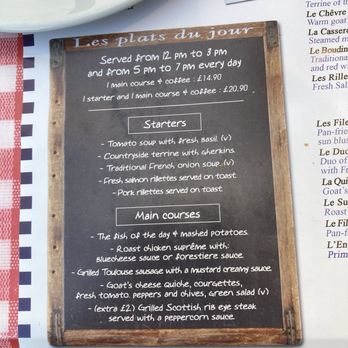 Les plats du jour
Served from 12 pm to 3 pm
and from 5 pm to 7 pm every day
1 main course & coffee : £14.90
1 starter and 1 main course & coffee : £20.90
Starters
- Tomato soup with fresh basil (v)
- Countryside terrine with gherkins.
- Traditional French onion soup (v)
- Fresh salmon rillettes served on toast
- Pork rillettes served on toast
Main courses
- The fish of the day & mashed potatoes.
- Roast chicken suprême with:
bluecheese sauce or forestiere sauce.
- Grilled Toulouse sausage with a mustard creamy sauce
- Goat's cheese quiche, courgettes,
fresh tomato. peppers and chives, green salad (v)
- (extra £2) Grilled Scottish rib eye steak
served with a peppercorn sauce.
Terrine of th
Le Chèvre
Warm goat
La Casser
Steamed m
Le Boudin
Traditiona
and red w
Les Rille
Fresh Salm
Les File
Pan-frie
sun blus
Le Duo
Duo of
with Fr
La Qui
Goat's
Le Su
Roast
Le Fil
Pan-f
L'En
Prim